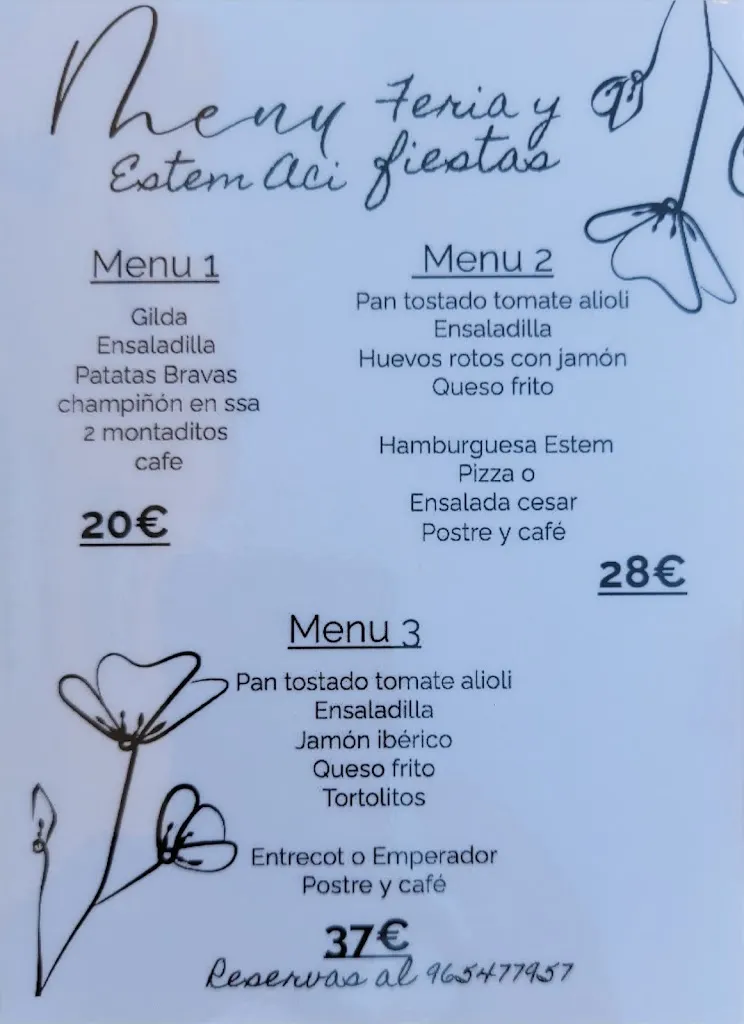 Meny Feria y
Estem Aci fiestas
Menu 1
Gilda
Ensaladilla
Patatas Bravas
champiñón en ssa
2 montaditos
cafe
20€
Menu 2
Pan tostado tomate alioli
Ensaladilla
Huevos rotos con jamón
Queso frito
Hamburguesa Estem
Pizza o
Ensalada cesar
Postre y café
28€
Menu 3
Pan tostado tomate alioli
Ensaladilla
Jamón ibérico
Queso frito
Tortolitos
Entrecot o Emperador
Postre y café
37€
Reservas al 965477957